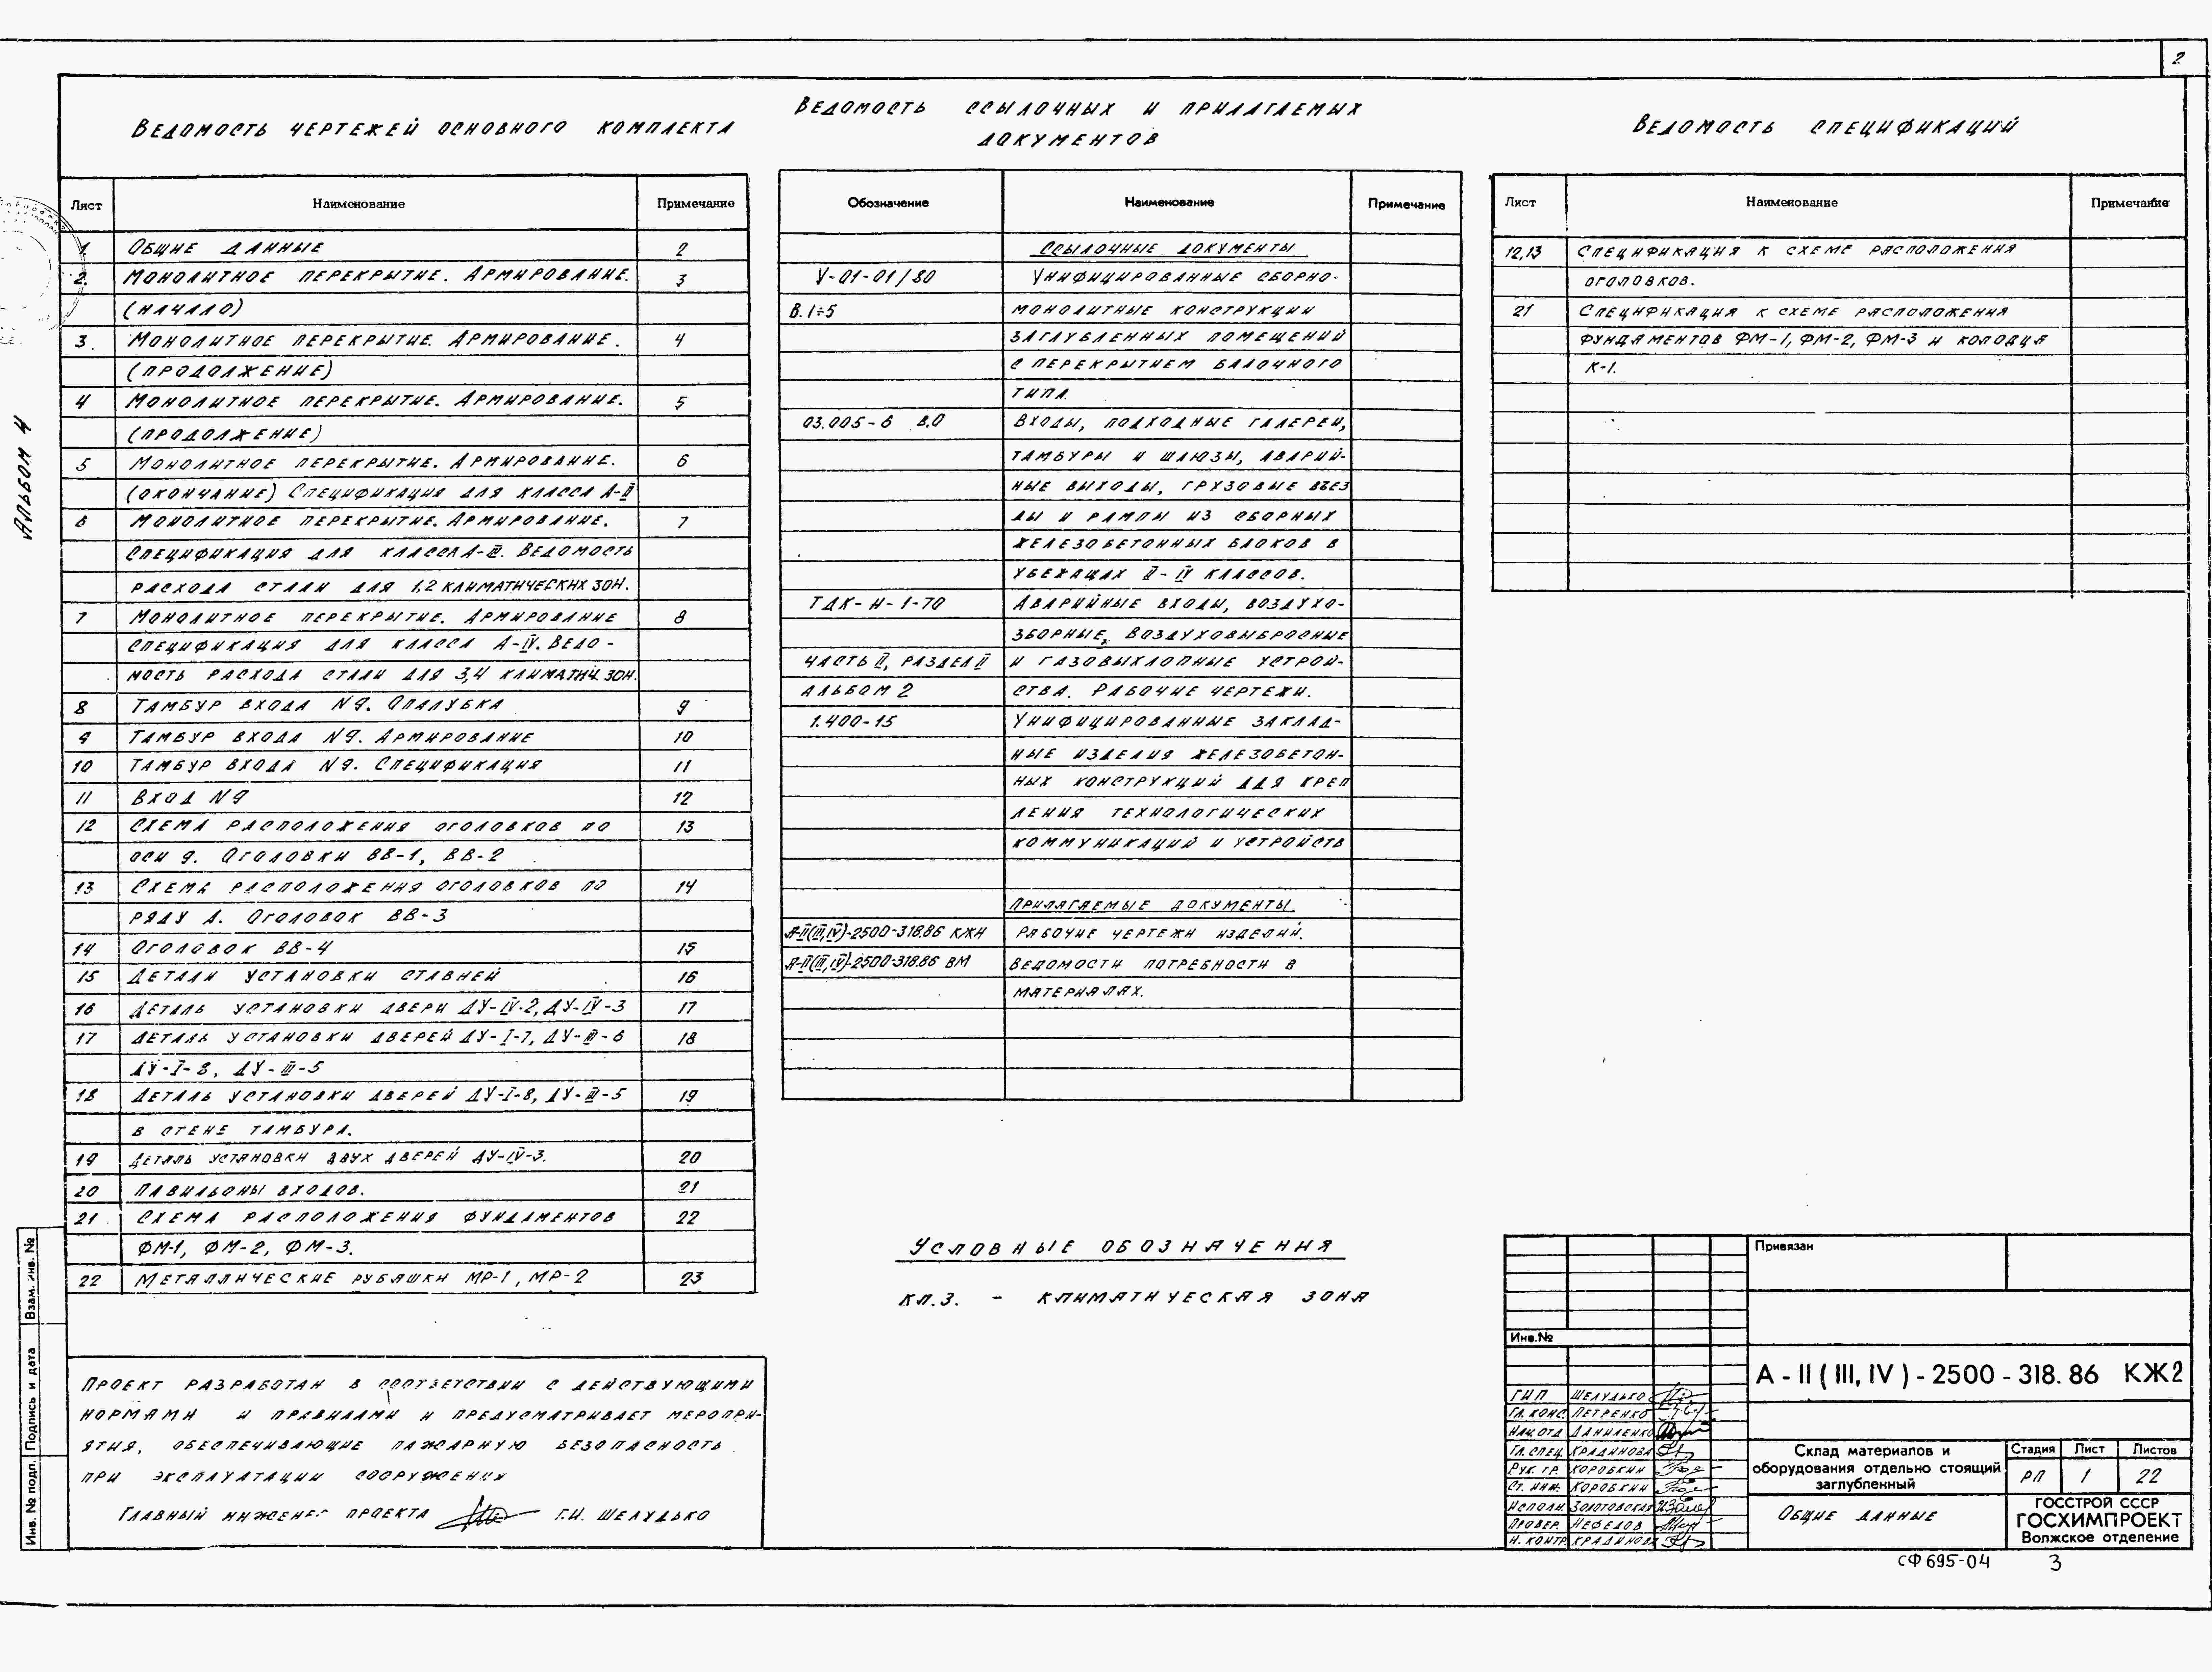 2
Ведомость чертежей основного комплекта
Лист Наименование Примечание
1 Общие данные 2
2. Монолитное перекрытие. Армирование. 3
(начало)
3. Монолитное перекрытие. Армирование. 4
(продолжение)
4 Монолитное перекрытие. Армирование. 5
(продолжение)
5 Монолитное перекрытие. Армирование. 6
(окончание) Спецификация для класса А-II
6 Монолитное перекрытие. Армирование. 7
Спецификация для класса А-III. Ведомость
расхода стали для 1,2 климатических зон.
7 Монолитное перекрытие. Армирование 8
Спецификация для класса А-IV. Ведо-
мость расхода стали для 3,4 климатич. зон.
8 Тамбур входа N9. Опалубка 9
9 Тамбур входа N9. Армирование 10
10 Тамбур входа N9. Спецификация 11
11 Вход N9 12
12 Схема расположения оголовков по 13
оси 9. Оголовки ВВ-1, ВВ-2
13 Схема расположения оголовков по 14
ряду А. Оголовок ВВ-3
14 Оголовок ВВ-4 15
15 Детали установки ставней 16
16 Деталь установки двери ДУ-IV-2, ДУ-IV-3 17
17 Деталь установки дверей ДУ-I-7, ДУ-III-6 18
ДУ-I-8, ДУ-III-5
18 Деталь установки дверей ДУ-I-8, ДУ-III-5 19
в стене тамбура.
19 Деталь установки двух дверей ДУ-IV-3. 20
20 Павильоны входов. 21
21 Схема расположения фундаментов 22
ФМ-1, ФМ-2, ФМ-3.
22 Металлические рубашки МР-1, МР-2 23
Ведомость ссылочных и прилагаемых
документов
Обозначение Наименование Примечание
Ссылочные документы
У-01-01/80 Унифицированные сборно-
В.1÷5 монолитные конструкции
заглубленных помещений
с перекрытием балочного
типа
03.005-6 В.0 Входы, подходные галереи,
тамбуры и шлюзы, аварий-
ные выходы, грузовые въез
ды и рампы из сборных
железобетонных блоков в
убежащах II-IV классов.
ТДК-Н-1-70 Аварийные входы, воздухо-
зборные, воздуховыбросные
часть II, раздел II и газовыхлопные устрой-
альбом 2 ства. Рабочие чертежи.
1.400-15 Унифицированные заклад-
ные изделия железобетон-
ных конструкций для креп
ления технологических
коммуникаций и устройств
Прилагаемые документы
А-II(III,IV)-2500-318.86 КЖИ Рабочие чертежи изделий.
А-II(III,IV)-2500-318.86 ВМ Ведомости потребности в
материалах.
Ведомость спецификаций
Лист Наименование Примечание
12,13 Спецификация к схеме расположения
оголовков.
21 Спецификация к схеме расположения
фундаментов ФМ-1, ФМ-2, ФМ-3 и колодца
К-1.
Условные обозначения
кл.з. - климатическая зона
Альбом 4
Взам. инв. №
Подпись и дата
Инв. № подл.
Проект разработан в соответствии с действующими
нормами и правилами и предусматривает меропри-
ятия, обеспечивающие пажарную безопасность
при эксплуатации сооружения
Главный инженер проекта Г.И. Шелудько
Привязан
Инв.№
А - II ( III, IV ) - 2500 - 318. 86 КЖ2
ГИП Шелудько
Гл. конс. Петренко
Нач.отд Даниленко
Гл. спец. Крадинова
Рук. гр. Коробкин
Ст. инж. Коробкин
Исполн. Золотовская
Провер. Нефедов
Н. контр. Крадинова
Склад материалов и
оборудования отдельно стоящий
заглубленный
Стадия Лист Листов
РП 1 22
Общие данные
ГОССТРОЙ СССР
ГОСХИМПРОЕКТ
Волжское отделение
СФ 695-04 3